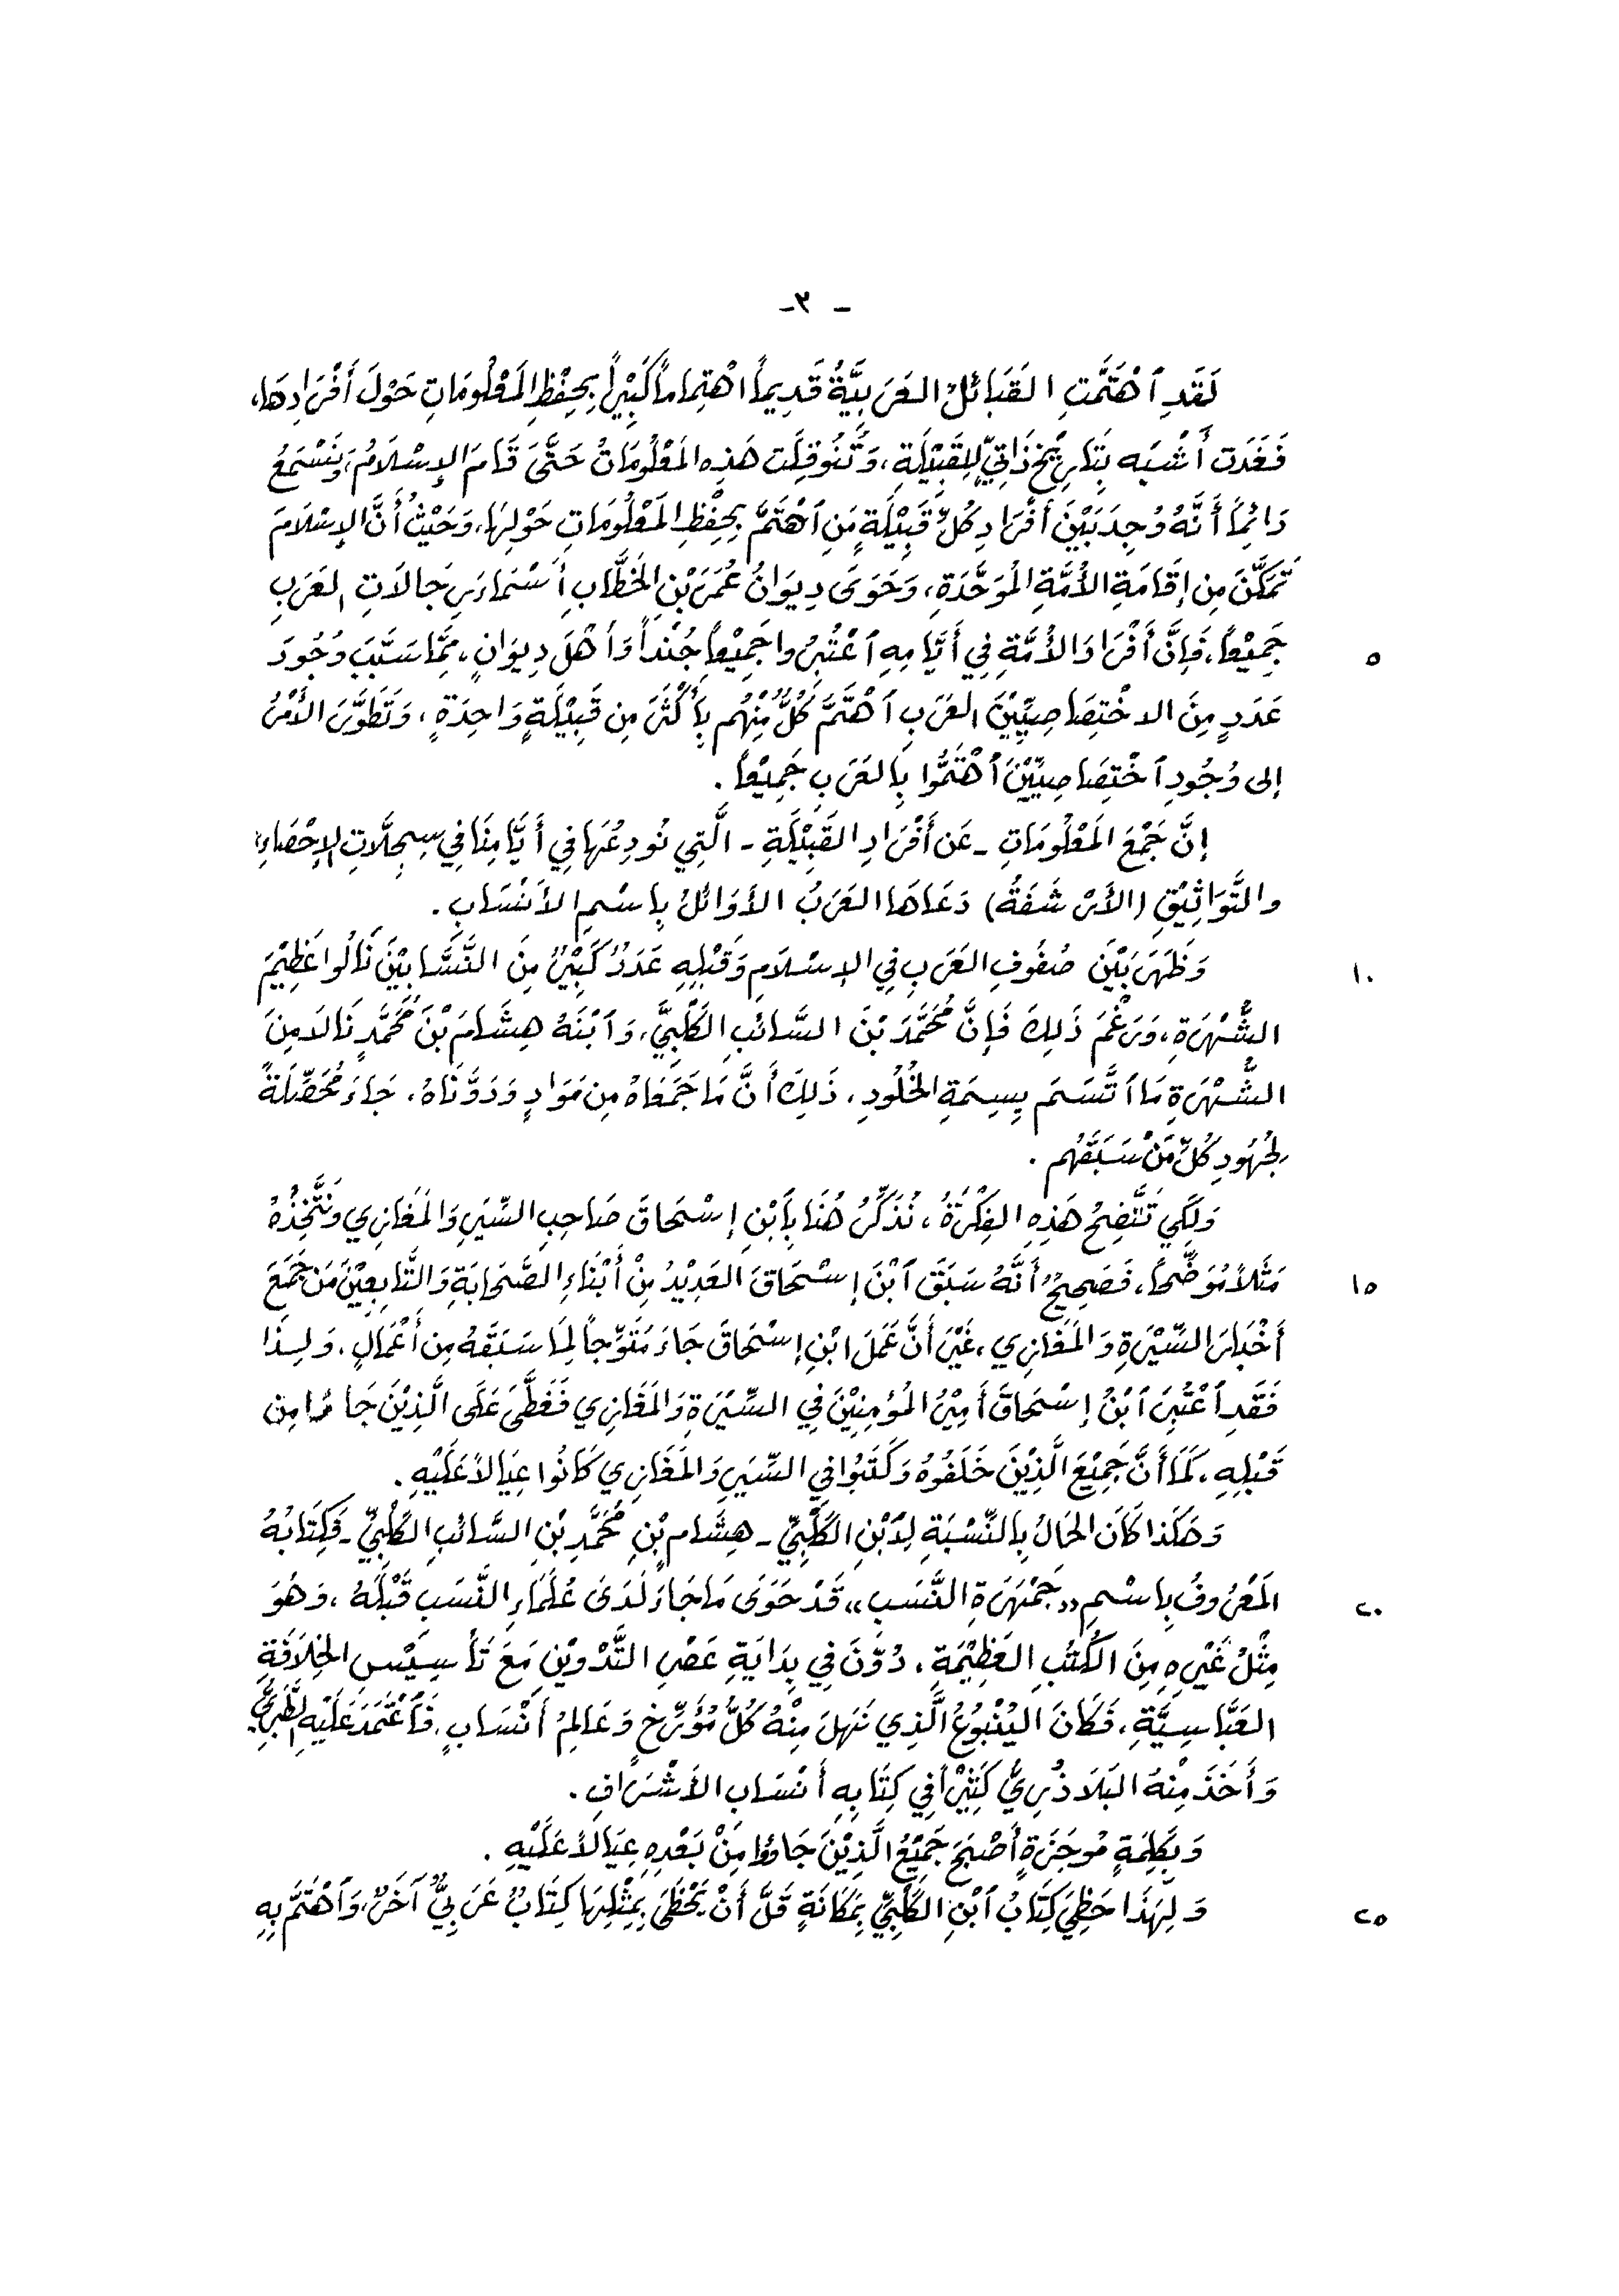 - ٣-
لَقَدِ ٱهْتَمَّتِ القَبَائِلُ العَرَبِيَّةُ قَدِيماً اهْتِماماً كَبِيْراً بِحِفْظِ المَعْلُومَاتِ حَوْلَ أَفْرَادِهَا،
فَغَدَت أَشْبَه بِتَارِيْخٍ ذَاتِيٍّ لِلقَبِيْلَةِ، وَتُنُوقِلَت هَذِهِ المَعْلُومَاتُ حَتَّى قَامَ الإِسْلَامُ، وَنَسْمَعُ
دَائِماً أَنَّهُ وُجِدَ بَيْنَ أَفْرَادِ كُلِّ قَبِيْلَةٍ مَنِ ٱهْتَمَّ بِحِفْظِ المَعْلُومَاتِ حَوْلِهَا، وَحَيْثُ أَنَّ الإِسْلَامَ
تَمَكَّنَ مِن إِقَامَةِ الأُمَّةِ المُوَحَّدَةِ، وَحَوَى دِيوَانُ عُمَرَ بْنِ الخَطَّابِ أَسْمَاءَ رِجَالَاتِ العَرَبِ
جَمِيْعاً، فَإِنَّ أَفْرَادَ الأُمَّةِ فِي أَيَّامِهِ ٱعْتُبِرُوا جَمِيْعاً جُنْداً وَأَهْلَ دِيوَانٍ، مِمَّا سَبَّبَ وُجُودَ ٥
عَدَدٍ مِنَ الاخْتِصَاصِيِّيْنَ العَرَبِ ٱهْتَمَّ كُلٌّ مِنْهُم بِأَكْثَرَ مِن قَبِيْلَةٍ وَاحِدَةٍ، وَتَطَوَّرَ الأَمْرُ
إِلى وُجُودِ ٱخْتِصَاصِيِّيْنَ ٱهْتَمُّوا بِالعَرَبِ جَمِيْعاً.
إِنَّ جَمْعَ المَعْلُومَاتِ - عَن أَفْرَادِ القَبِيْلَةِ - الَّتِي نُودِعُهَا فِي أَيَّامِنَا فِي سِجِلَّاتِ الإِحْصَاءِ
والتَّوَاثِيْقِ (الأَرْشَفَةُ) دَعَاهَا العَرَبُ الأَوَائِلُ بِاسْمِ الأَنْسَابِ.
وَظَهَرَ بَيْنَ صُفُوفِ العَرَبِ فِي الإِسْلَامِ وَقَبْلِهِ عَدَدٌ كَبِيْرٌ مِنَ النَّسَّابِيْنَ نَالُوا عَظِيْمَ ١٠
الشُّهْرَةِ، وَرَغْمَ ذَلِكَ فَإِنَّ مُحَمَّدَ بْنَ السَّائبِ الكَلْبِيَّ، وَٱبْنَهُ هِشَامَ بْنَ مُحَمَّدٍ نَالَا مِنَ
الشُّهْرَةِ مَا ٱتَّسَمَ بِسِمَةِ الخُلُودِ، ذَلِكَ أَنَّ مَا جَمَعَاهُ مِن مَوَادٍ وَدَوَّنَاهُ، جَاءَ مُحَصِّلَةً
لِجُهُودِ كُلِّ مَنْ سَبَقَهُم.
وَلِكَي تَتَّضِحُ هَذِهِ الفِكْرَةُ، نُذَكِّرُ هُنَا بِٱبْنِ إِسْحَاقَ صَاحِبِ السِّيَرِ وَالمَغَازِي وَنَتَّخِذُهُ
مَثَلاً مُوَضِّحاً، فَصَحِيحٌ أَنَّهُ سَبَقَ ٱبْنَ إِسْحَاقَ العَدِيْدُ مِنْ أَبْنَاءِ الصَّحَابَةِ وَالتَّابِعِيْنَ مَن جَمَعَ ١٥
أَخْبَارَ السِّيْرَةِ وَالمَغَازِي، غَيْرَ أَنَّ عَمَلَ ابْنِ إِسْحَاقَ جَاءَ مُتَوِّجاً لِمَا سَبَقَهُ مِن أَعْمَالٍ، وَلِذَا
فَقَدِ ٱعْتُبِرَ ٱبْنُ إِسْحَاقَ أَمِيْرُ المُؤمِنِيْنَ فِي السِّيْرَةِ وَالمَغَازِي فَغَطَّى عَلَى الَّذِيْنَ جَاؤُا مِن
قَبْلِهِ، كَمَا أَنَّ جَمِيْعَ الَّذِيْنَ خَلَفُوهُ وَكَتَبُوا فِي السِّيَرِ وَالمَغَازِي كَانُوا عِيَالاً عَلَيْهِ.
وَهَكَذا كَانَ الحَالُ بِالنِّسْبَةِ لِابْنِ الكَلْبِيِّ - هِشَامِ بْنِ مُحَمَّدِ بْنِ السَّائبِ الكَلْبِيِّ - فَكِتَابُهُ
المَعْرُوفُ بِاسْمِ «جَمْهَرَةِ النَّسَبِ» قَدْ حَوَى مَا جَاءَ لَدَى عُلَمَاءِ النَّسَبِ قَبْلَهُ، وَهُوَ ٢٠
مِثْلُ غَيْرِهِ مِنَ الكُتُبِ العَظِيْمَةِ، دُوِّنَ فِي بِدَايَةِ عَصْرِ التَّدْوِيْنِ مَعَ تَأْسِيْسِ الخِلَافَةِ
العَبَّاسِيَّةِ، فَكَانَ اليُنْبُوعُ الَّذِي نَهَلَ مِنْهُ كُلُّ مُؤَرِّخٍ وَعَالِمُ أَنْسَابٍ، فَٱعْتَمَدَ عَلَيْهِ الطَّبَرِيُّ
وَأَخَذَ مِنْهُ البَلَاذُرِيُّ كَثِيْراً فِي كِتَابِهِ أَنْسَابِ الأَشْرَافِ.
وَبِكَلِمَةٍ مُوجَزَةٍ أَصْبَحَ جَمِيْعُ الَّذِيْنَ جَاؤُا مِنْ بَعْدِهِ عِيَالاً عَلَيْهِ.
وَلِهَذَا حَظِيَ كِتَابُ ٱبْنِ الكَلْبِيِّ بِمَكَانَةٍ قَلَّ أَنْ يَحْظَى بِمِثْلِهَا كِتَابٌ عَرَبِيٌّ آخَرُ، وَٱهْتَمَّ بِهِ ٢٥